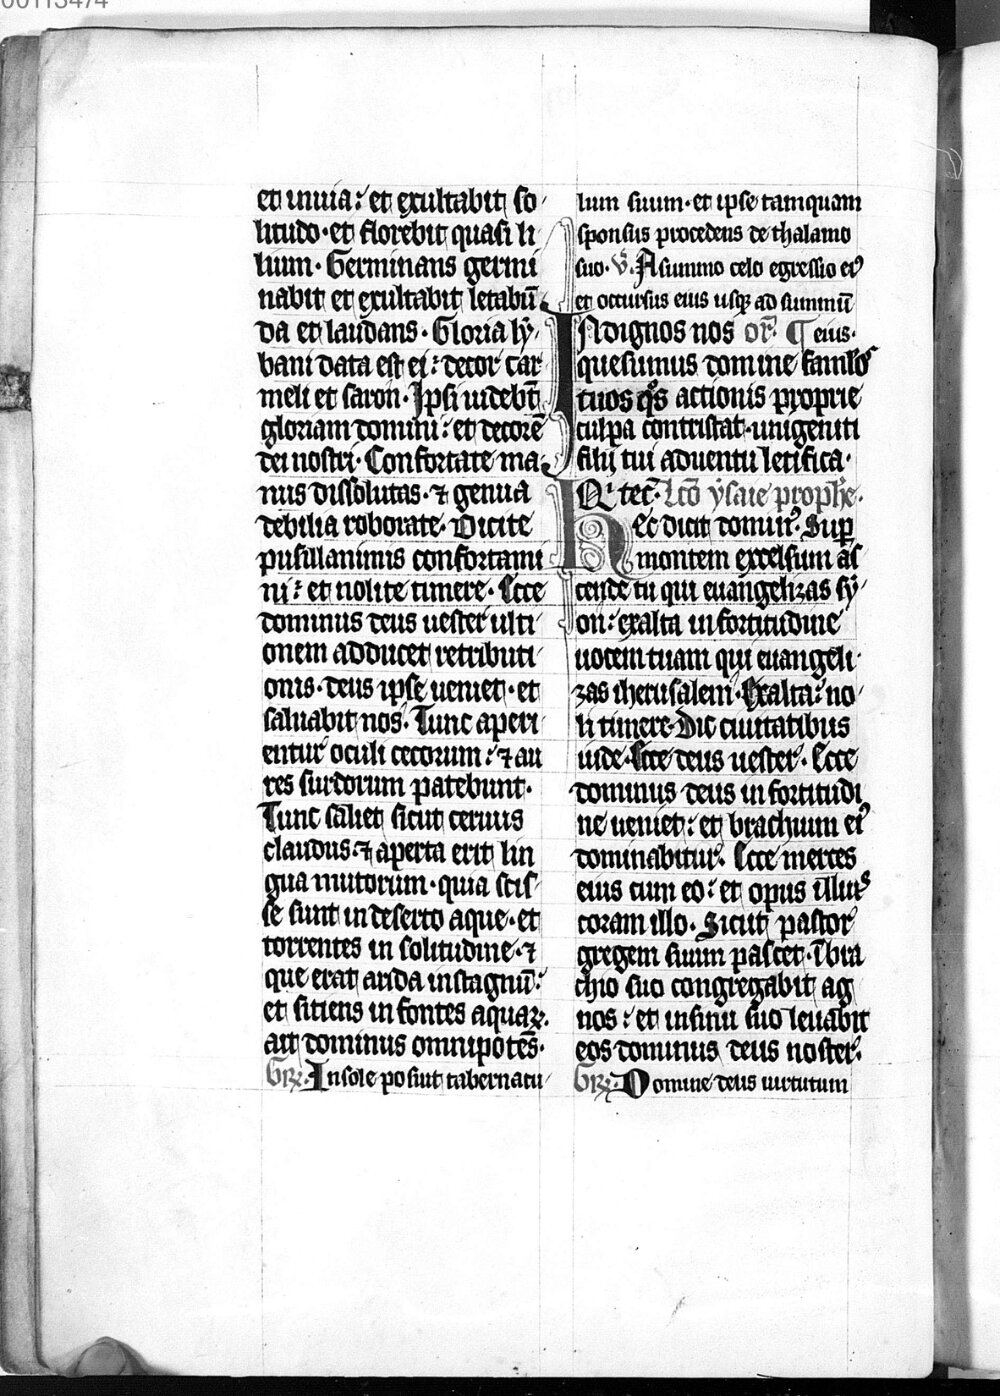 00113474
et inuia: et exultabit so
litudo · et florebit quasi li
lium · Germinans germi
nabit et exultabit letabū
da et laudans · Gloria ly
bani data est ei: decor car
meli et saron · Ipsi uidebt̄
gloriam domini: et decorē
dei nostri · Confortate ma
nus dissolutas · ⁊ genua
debilia roborate · Dicite
pusillanimis confortami
ni: et nolite timere · Ecce
dominus deus uester ulti
onem adducet retributi
onis · deus ipse ueniet · et
saluabit nos · Tunc aperi
entur oculi cecorum: ⁊ au
res surdorum patebunt ·
Tunc saliet sicut ceruus
claudus · ⁊ aperta erit lin
gua mutorum · quia scis
se sunt in deserto aque · et
torrentes in solitudine · ⁊
que erat arida in stagnū:
et sitiens in fontes aquaꝝ ·
ait dominus omnipotēs ·
Grꝝ · In sole posuit tabernacu
lum suum · et ipse tamquam
sponsus procedens de thalamo
suo · v̄ · A summo celo egressio eiꝰ
et occursus eius usqꝫ ad summū
INdignos nos or̄ · ¶ eius ·
quesumus domine famlos
tuos qͦs actionis proprie
culpa contristat · unigeniti
filij tui aduentu letifica ·
Qͥ tec̄ · Lcō ysaie prophe ·
Hec dicit dominꝰ · Sup
montem excelsum as
cende tu qui euangelizas sy
on: exalta in fortitudine
uocem tuam qui euangeli
zas iherusalem · Exalta: no
li timere · Dic ciuitatibus
iude · Ecce deus uester · Ecce
dominus deus in fortitudi
ne ueniet: et brachium eiꝰ
dominabitur · Ecce merces
eius cum eo: et opus illiuꝰ
coram illo · Sicut pastor
gregem suum pascet · Ī bra
chio suo congregabit ag
nos: et in sinu suo leuabit
eos dominus deus noster ·
Grꝝ · Domine deus uirtutum